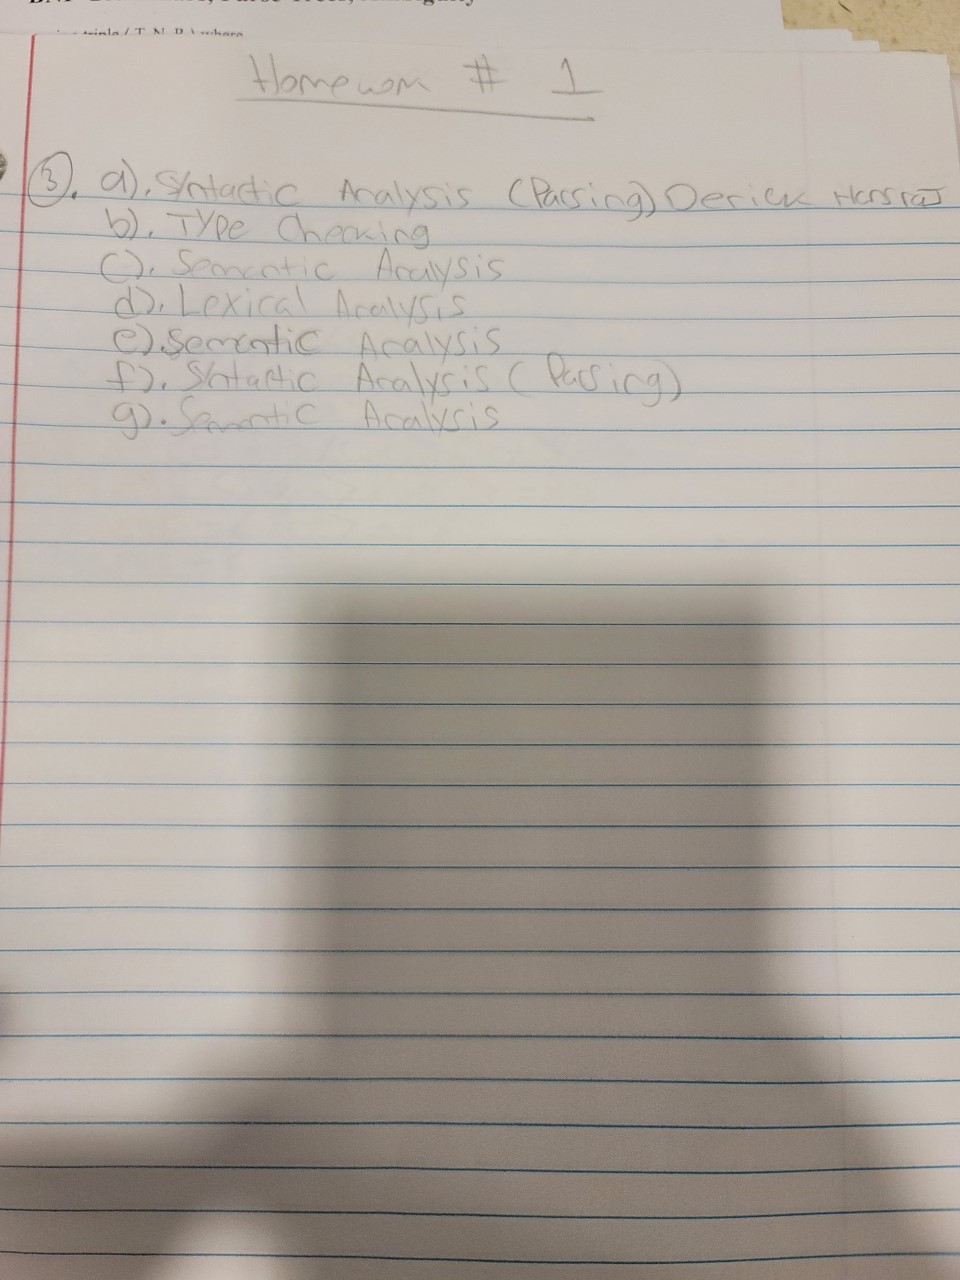 Homework # 1
3. a). Syntactic Analysis (Parsing) Derick
b). Type Checking
c). Semantic Analysis
d). Lexical Analysis
e). Semantic Analysis
f). Syntactic Analysis (Parsing)
g). Semantic Analysis